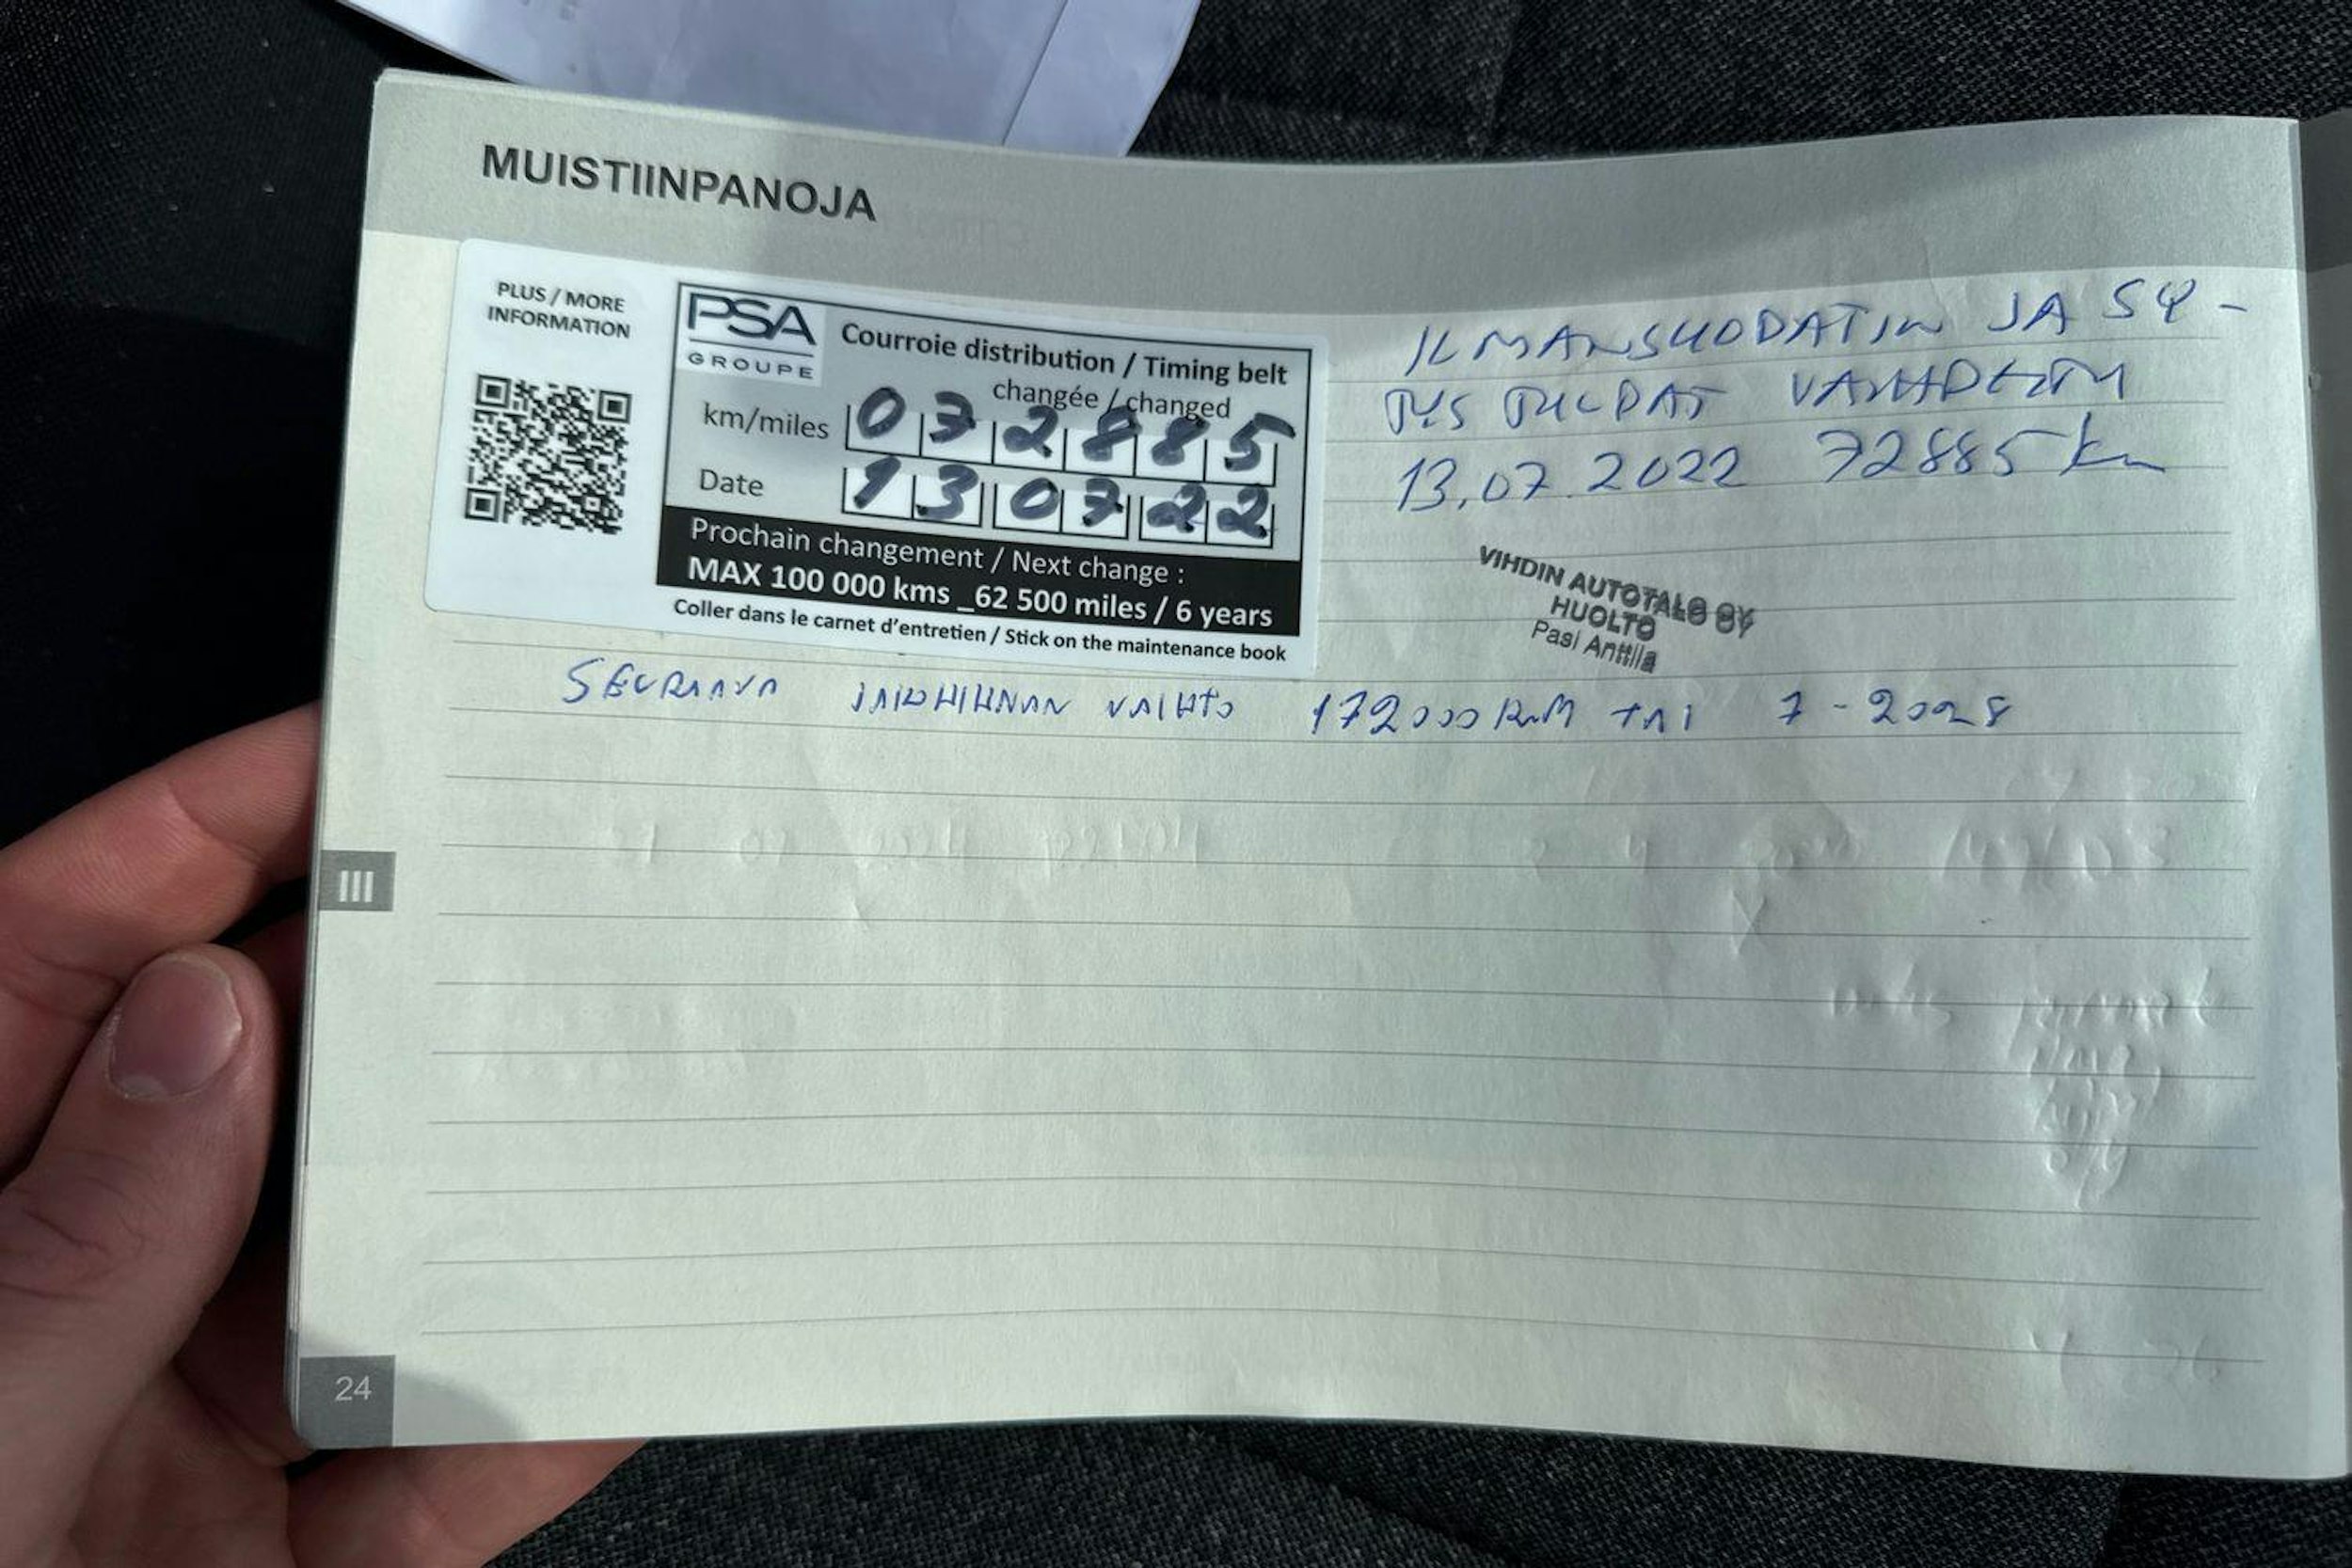 MUISTIINPANOJA
PLUS / MORE
INFORMATION
PSA
GROUPE
Courroie distribution / Timing belt
changée / changed
km/miles 072885
Date 130722
Prochain changement / Next change :
MAX 100 000 kms _62 500 miles / 6 years
Coller dans le carnet d'entretien / Stick on the maintenance book
ILMANSUODATIN JA SY-
TYSTULPAT VAIHDETTU
13.07.2022 72885 km
VIHDIN AUTOTALO OY
HUOLTO
Pasi Anttila
SEURAAVA JAKOHIHNAN VAIHTO 172000 KM TAI 7-2028
III
24